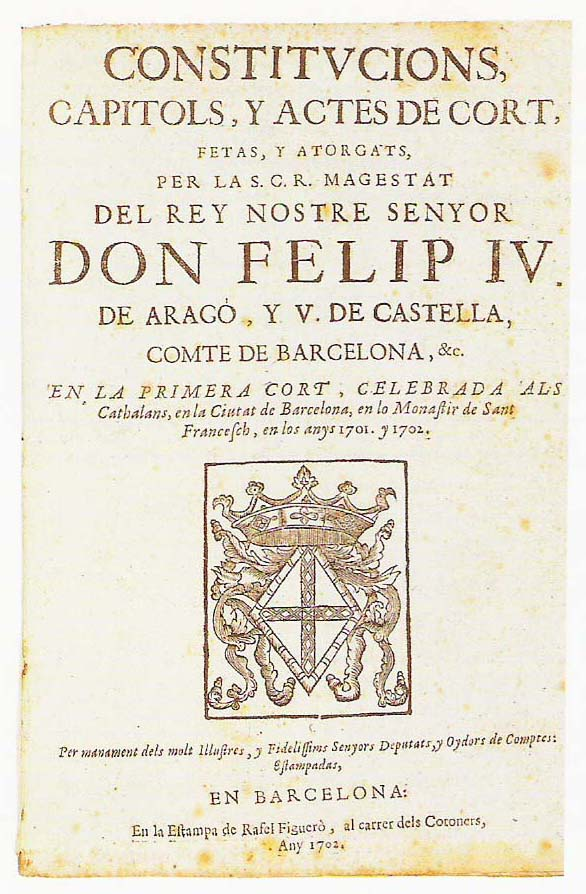 CONSTITVCIONS,
CAPITOLS, Y ACTES DE CORT,
FETAS, Y ATORGATS,
PER LA S. C. R. MAGESTAT
DEL REY NOSTRE SENYOR
DON FELIP IV.
DE ARAGÒ, Y V. DE CASTELLA,
COMTE DE BARCELONA, &c.
EN LA PRIMERA CORT, CELEBRADA ALS
Cathalans, en la Ciutat de Barcelona, en lo Monaſtir de Sant
Franceſch, en los anys 1701. y 1702.
Per manament dels molt Illuſtres, y Fideliſsims Senyors Deputats, y Oydors de Comptes:
Eſtampadas,
EN BARCELONA:
En la Eſtampa de Rafel Figuerò, al carrer dels Cotoners,
Any 1702.